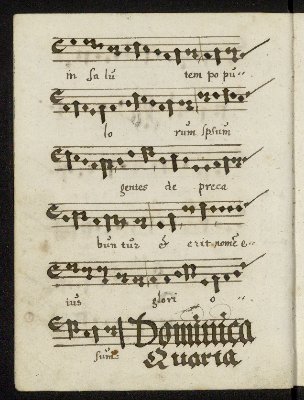 in sa lū tem po pu--
lo rum ipsum
gentes de preca
bun tur & erit nomē e--
ius glori o--
sum Dominica
Quarta